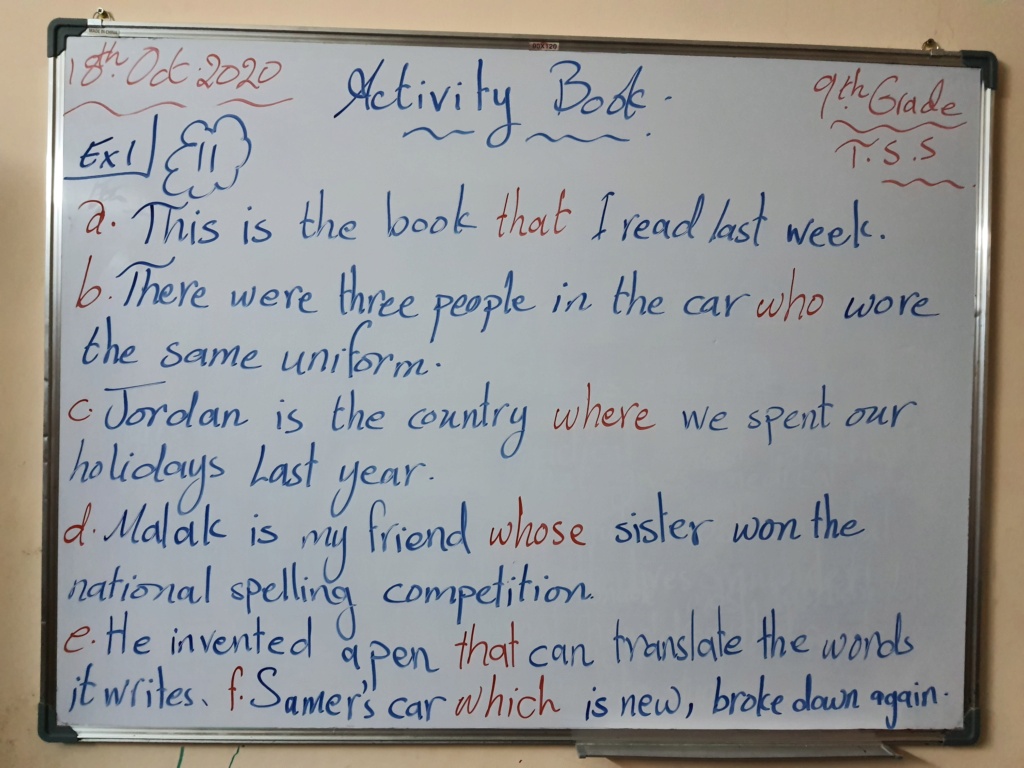 18th. Oct. 2020
Activity Book.
9th. Grade
T. S. S
Ex1
11
a. This is the book that I read last week.
b. There were three people in the car who wore
the same uniform.
c. Jordan is the country where we spent our
holidays Last year.
d. Malak is my friend whose sister won the
national spelling competition.
e. He invented a pen that can translate the words
it writes. f. Samer's car which is new, broke down again.